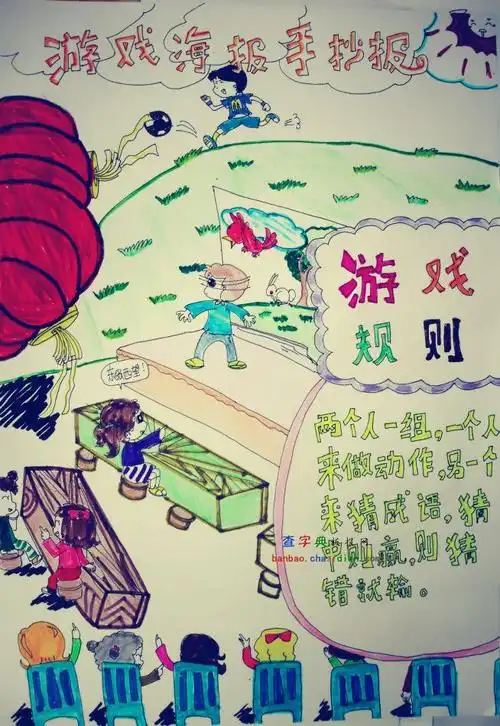 游戏海报手抄报
游戏
规则
东张西望!
两个人一组,一个人
来做动作,另一个
来猜成语,猜
中则赢,则猜
错就输。
查字典